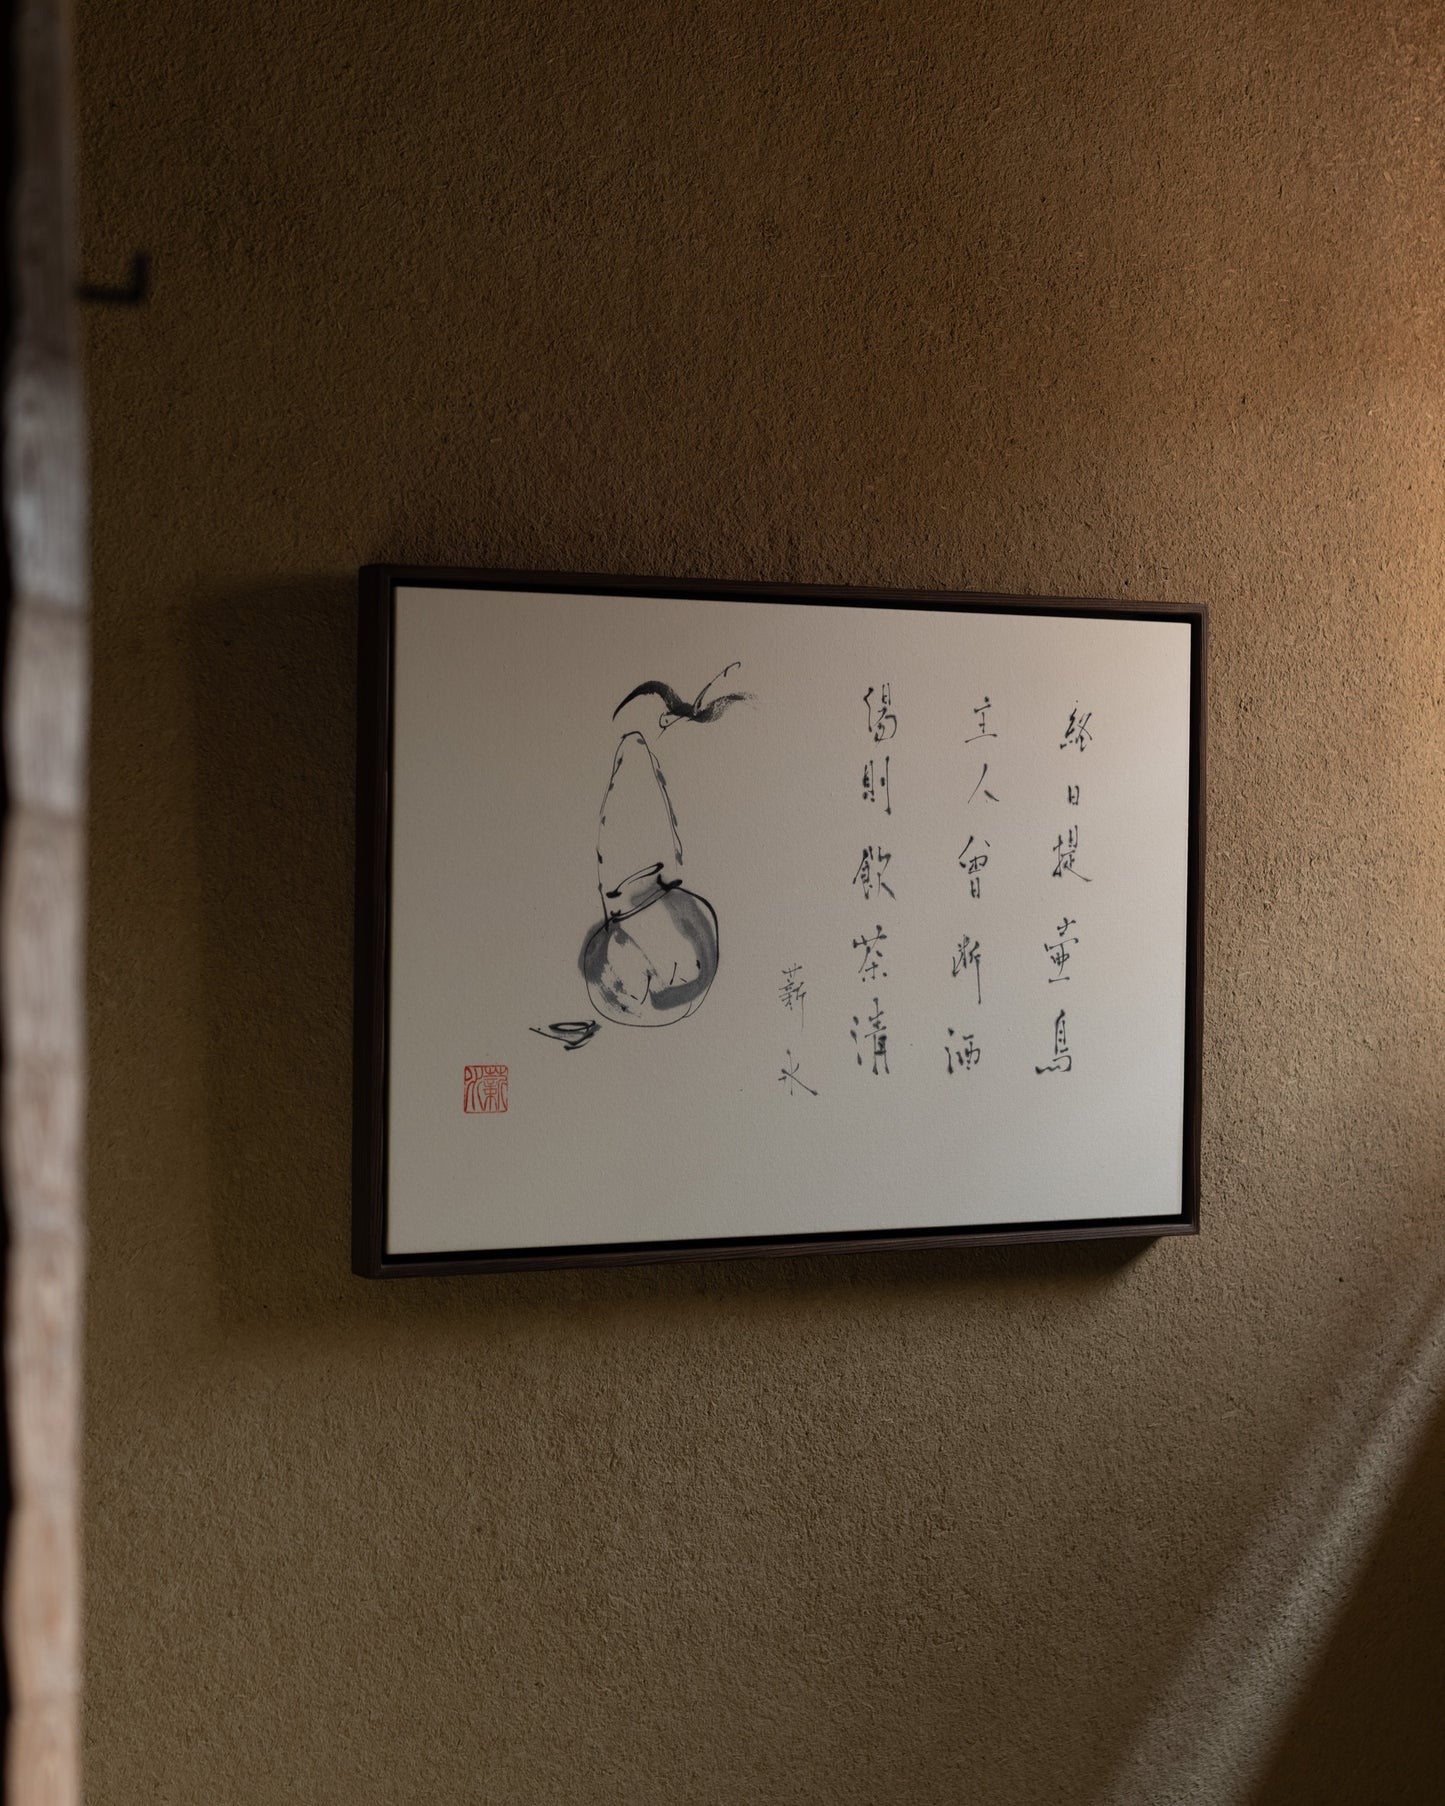 終日提壺鳥
主人曾断酒
渴則飲茶清
薪水